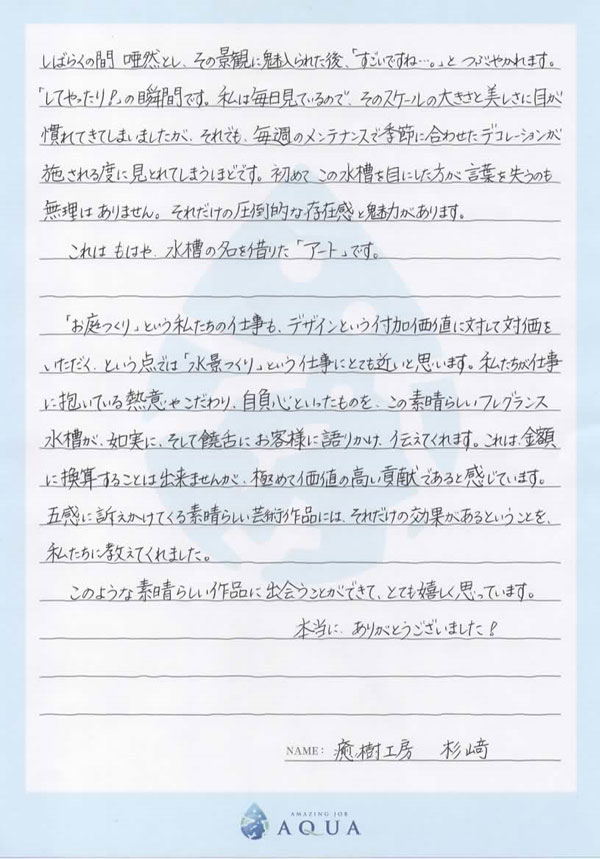 しばらくの間 唖然とし、その景観に魅入られた後、「すごいですね…。」と つぶやかれます。
「してやったり！」の瞬間です。私は毎日見ているので、そのスケールの大きさと美しさに目が
慣れてきてしまいましたが、それでも、毎週のメンテナンスで季節に合わせたデコレーションが
施される度に見とれてしまうほどです。初めて この水槽を目にした方が 言葉を失うのも
無理は ありません。それだけの圧倒的な存在感と魅力があります。
これは もはや、水槽の名を借りた「アート」です。
「お庭つくり」という私たちの仕事も、デザインという付加価値に対して対価を
いただく、という点では「水景つくり」という仕事にとても近いと思います。私たちが仕事
に抱いている熱意やこだわり、自負心といったものを、この素晴らしいフレグランス
水槽が、如実に、そして饒舌にお客様に語りかけ、伝えてくれます。これは、金額
に換算することは出来ませんが、極めて価値の高い貢献であると感じています。
五感に訴えかけてくる素晴らしい芸術作品には、それだけの効果があるということを、
私たちに教えてくれました。
このような素晴らしい作品に出会うことができて、とても嬉しく思っています。
本当に、ありがとうございました！
NAME: 癒樹工房 杉﨑
AMAZING JOB
AQUA